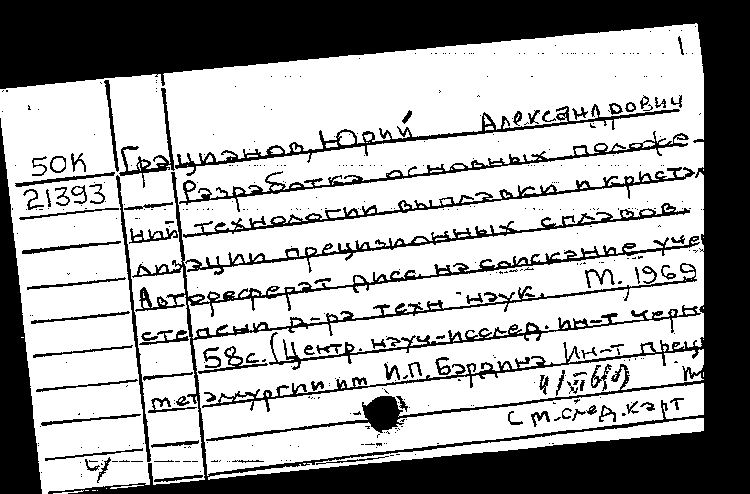 1
50К Грацианов, Юрий Александрович
21393 Разработка основных положе-
ний технологии выплавки и кристал
лизации прецизионных сплавов.
Автореферат дисс. на соискание уче
степени д-ра техн. наук. М., 1969
58с. (Центр. науч.-исслед. ин-т черно
металлургии им И.П. Бардина. Ин-т преци
См. след. карт